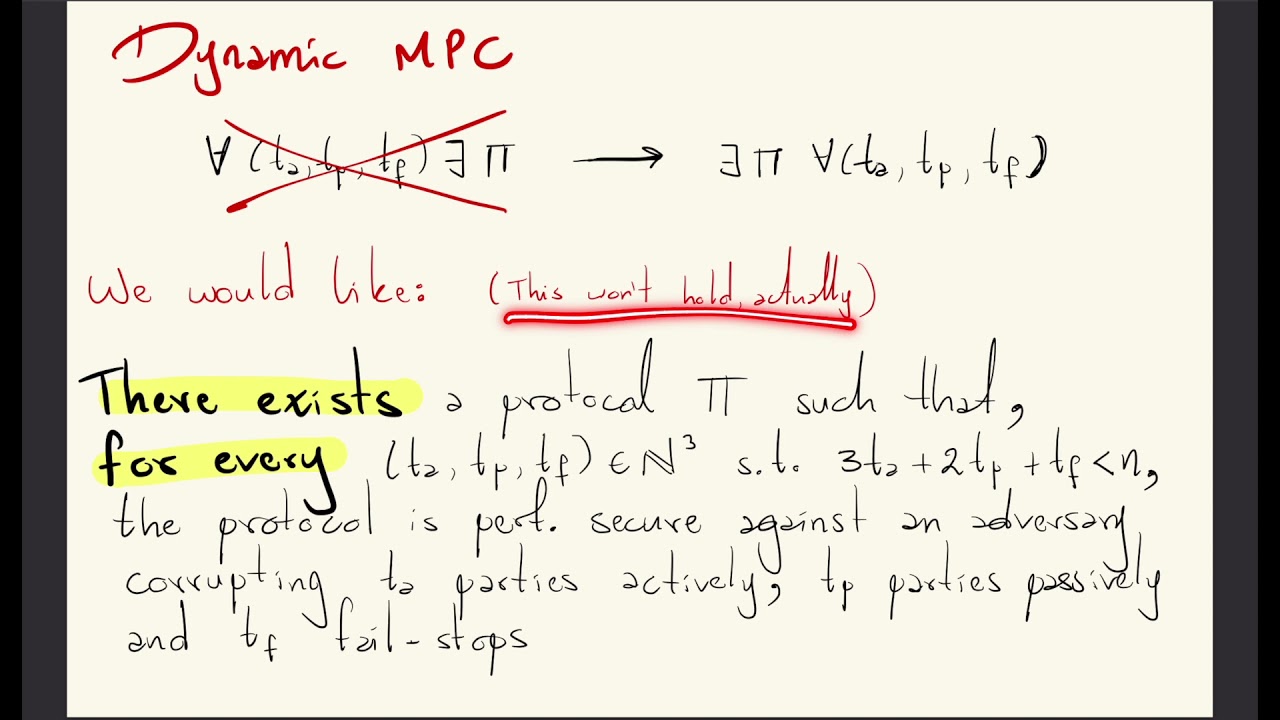 Dynamic MPC
∀(ta, tp, tf) ∃ Π → ∃ Π ∀(ta, tp, tf)
We would like: (This won't hold, actually)
There exists a protocal Π such that,
for every (ta, tp, tf) ∈ ℕ³ s.t. 3ta + 2tp + tf < n,
the protocol is perf. secure against an adversary
corrupting ta parties actively, tp parties passively
and tf fail-stops